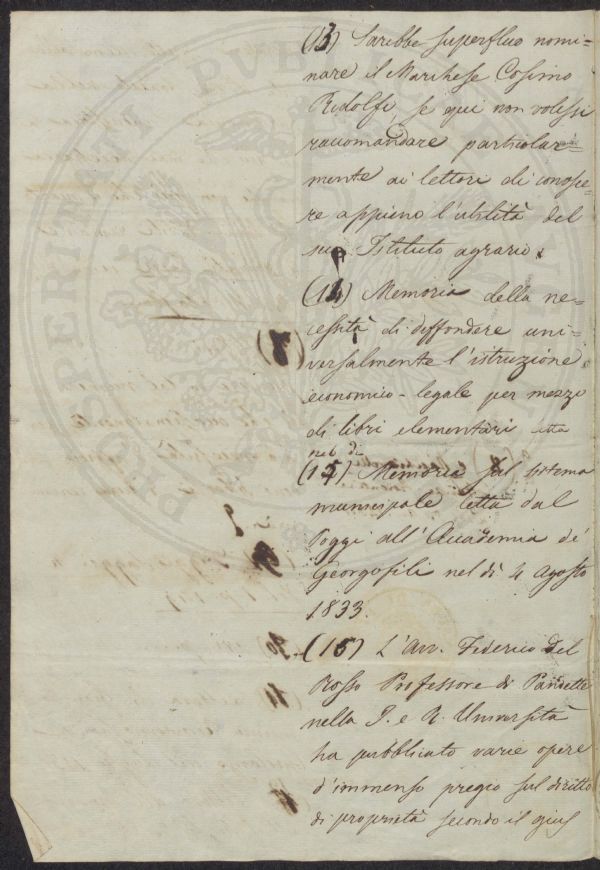 (13) Sarebbe superfluo nomi=
nare il Marchese Cosimo
Ridolfi, se qui non volessi
raccomandare particolar=
mente ai lettori di conosce=
re appieno l'utilità del
suo Istituto agrario.
(14) Memoria della ne=
cessità di diffondere uni=
versalmente l'istruzione
economico-legale per mezzo
di libri elementari
nel di
(15) Memoria sul sistema
municipale letta dal
Poggi all'Accademia de'
Georgofili nel dì 4 agosto
1833.
(16) L'Avv. Federico Del
Rosso Professore di Pandette
nella I. e R. Università
ha pubblicato varie opere
d'immenso pregio sul diritto
di proprietà secondo il gius
PROSPERITATI PUBLICAE